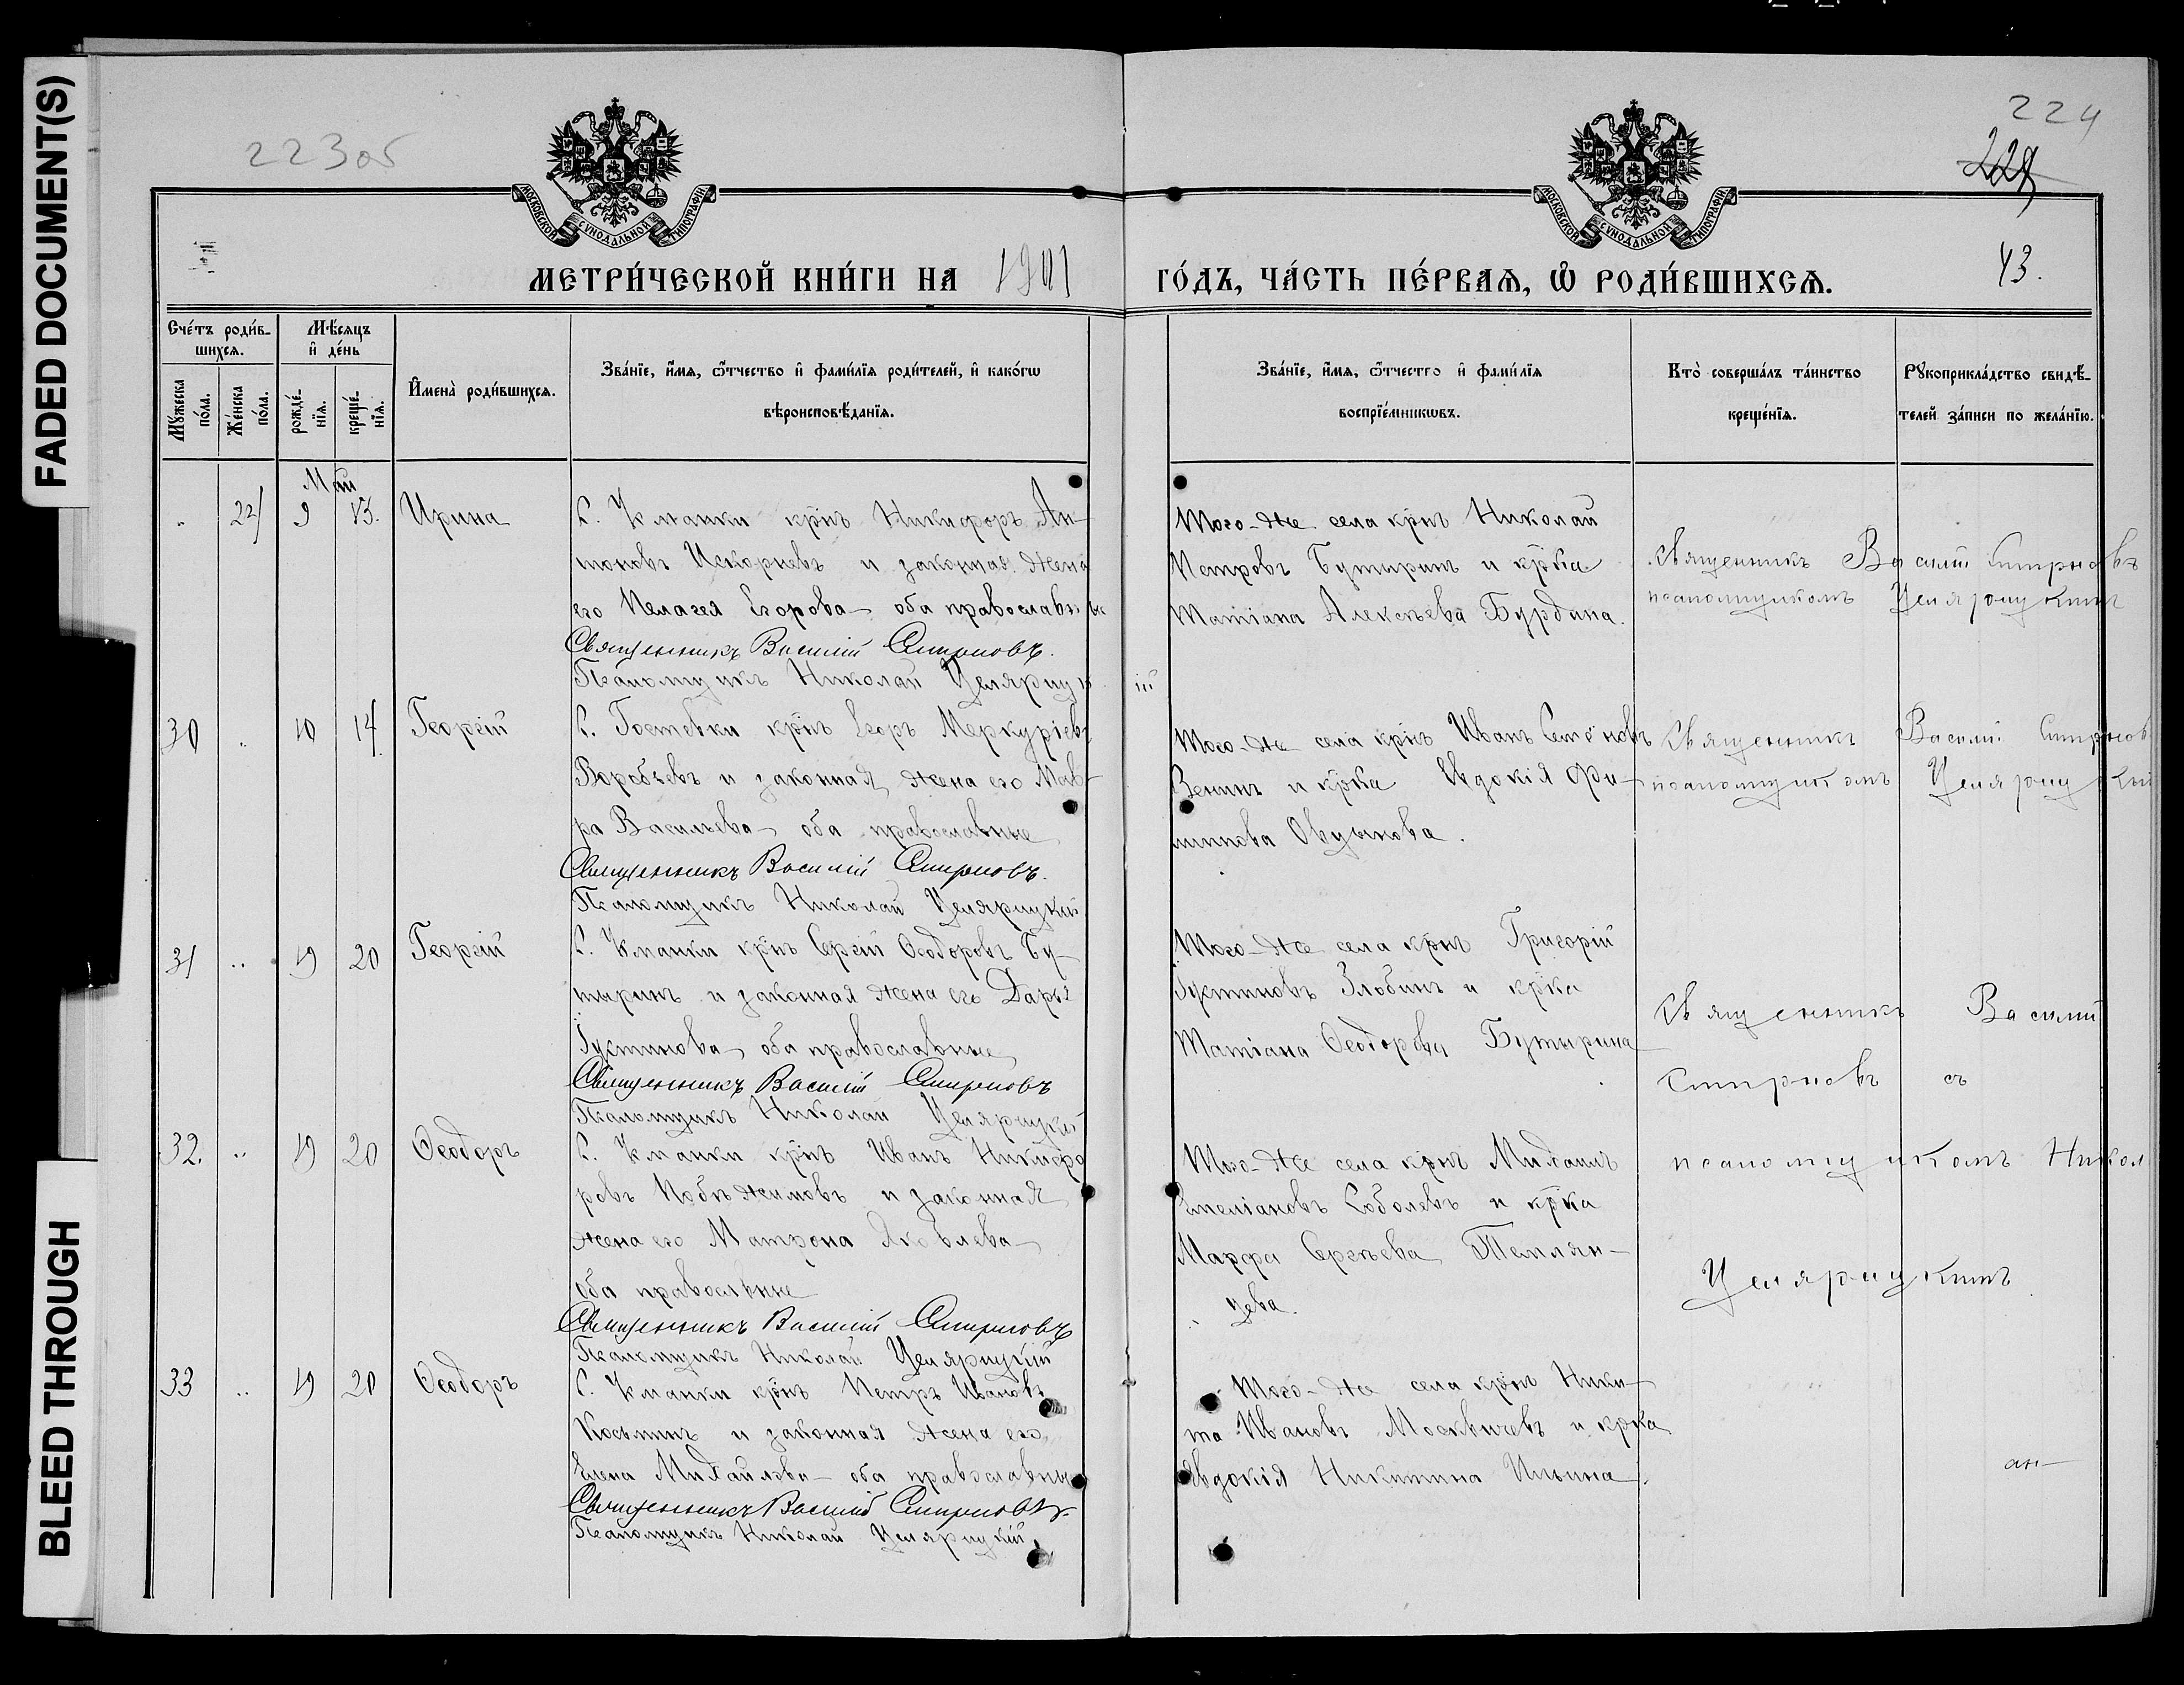 FADED DOCUMENT(S)
BLEED THROUGH
223 об
224
43.
МОСКОВСКОЙ СУНОДАЛЬНОЙ ТИПОГРАФІИ
МОСКОВСКОЙ СУНОДАЛЬНОЙ ТИПОГРАФІИ
МЕТРИ́ЧЕСКОЙ КНИ́ГИ НА 1901 ГО́ДЪ, ЧА́СТЬ ПЕ́РВАѦ, Ѽ РОДИ́ВШИХСѦ.
Сче́тъ роди́в-
шихсѧ.
Мꙋ́жеска
по́ла.
Же́нска
по́ла.
Мѣ́сѧцъ
и҆ де́нь
рожде́-
нїѧ.
креще́-
нїѧ.
И҆мена̀ роди́вшихсѧ.
Зва́нїе, и҆́мѧ, ѻ҆́тчество и҆ фами́лїѧ роди́телей, и҆ како́гѡ
вѣроисповѣ́данїѧ.
Зва́нїе, и҆́мѧ, ѻ҆́тчество и҆ фами́лїѧ
воспрїе́мникѡвъ.
Кто̀ соверша́лъ та́инство
креще́нїѧ.
Рꙋкоприкла́дство свидѣ́-
телей за́писи по жела́нїю.
Май
" 22 9 13. Ирина
С. Кманки крнъ Никифоръ Ан-
тоновъ Искорневъ и законная жена
его Пелагея Егорова оба православные
Священникъ Василій Смирновъ.
Псаломщикъ Николай Целярицкій
Того-же села крнъ Николай
Петровъ Бутыринъ и крка
Татіана Алексѣева Бурдина.
Священникъ Василій Смирновъ
псаломщикомъ Целярицкимъ
30 " 10 14. Георгій
С. Гостевки крнъ Егоръ Меркуріевъ
Воробьевъ и законная жена его Мав-
ра Васильева оба православные
Священникъ Василій Смирновъ.
Псаломщикъ Николай Целярицкій
Того-же села крнъ Иванъ Семеновъ
Венинъ и крка Евдокія Фи-
липпова
Священникъ Василій Смирнов
псаломщикомъ Целярицкій
31 " 19 20 Георгій
С. Кманки крнъ Сергій Ѳеодоровъ Бу-
тыринъ и законная жена его Дарья
Іустинова оба православные
Священникъ Василій Смирновъ
Псаломщикъ Николай Целярицкій
Того-же села крнъ Григорій
Іустиновъ Злобинъ и крка
Татіана Ѳеодорова Бутырина
Священникъ Василій
Смирновъ съ
32. " 19 20 Ѳеодоръ
С. Кманки крнъ Иванъ Никифо
ровъ Побѣжимовъ и законная
жена его Матрона Яковлева
оба православные
Священникъ Василій Смирновъ
Псаломщикъ Николай Целярицкій
Того-же села крнъ Михаилъ
Емеліановъ Соболевъ и крка
Марфа Сергѣева Темлян-
цева.
псаломщикомъ Никол
Целярицкимъ
33 " 19 20 Ѳеодоръ
С. Кманки крнъ Петръ Ивановъ
Косьминъ и законная жена его
Елена Михайлова оба православные
Священникъ Василій Смирновъ
Псаломщикъ Николай Целярицкій
Того-же села крнъ Ники-
та Ивановъ Москвичевъ и крка
Евдокія Никитина Ильина.